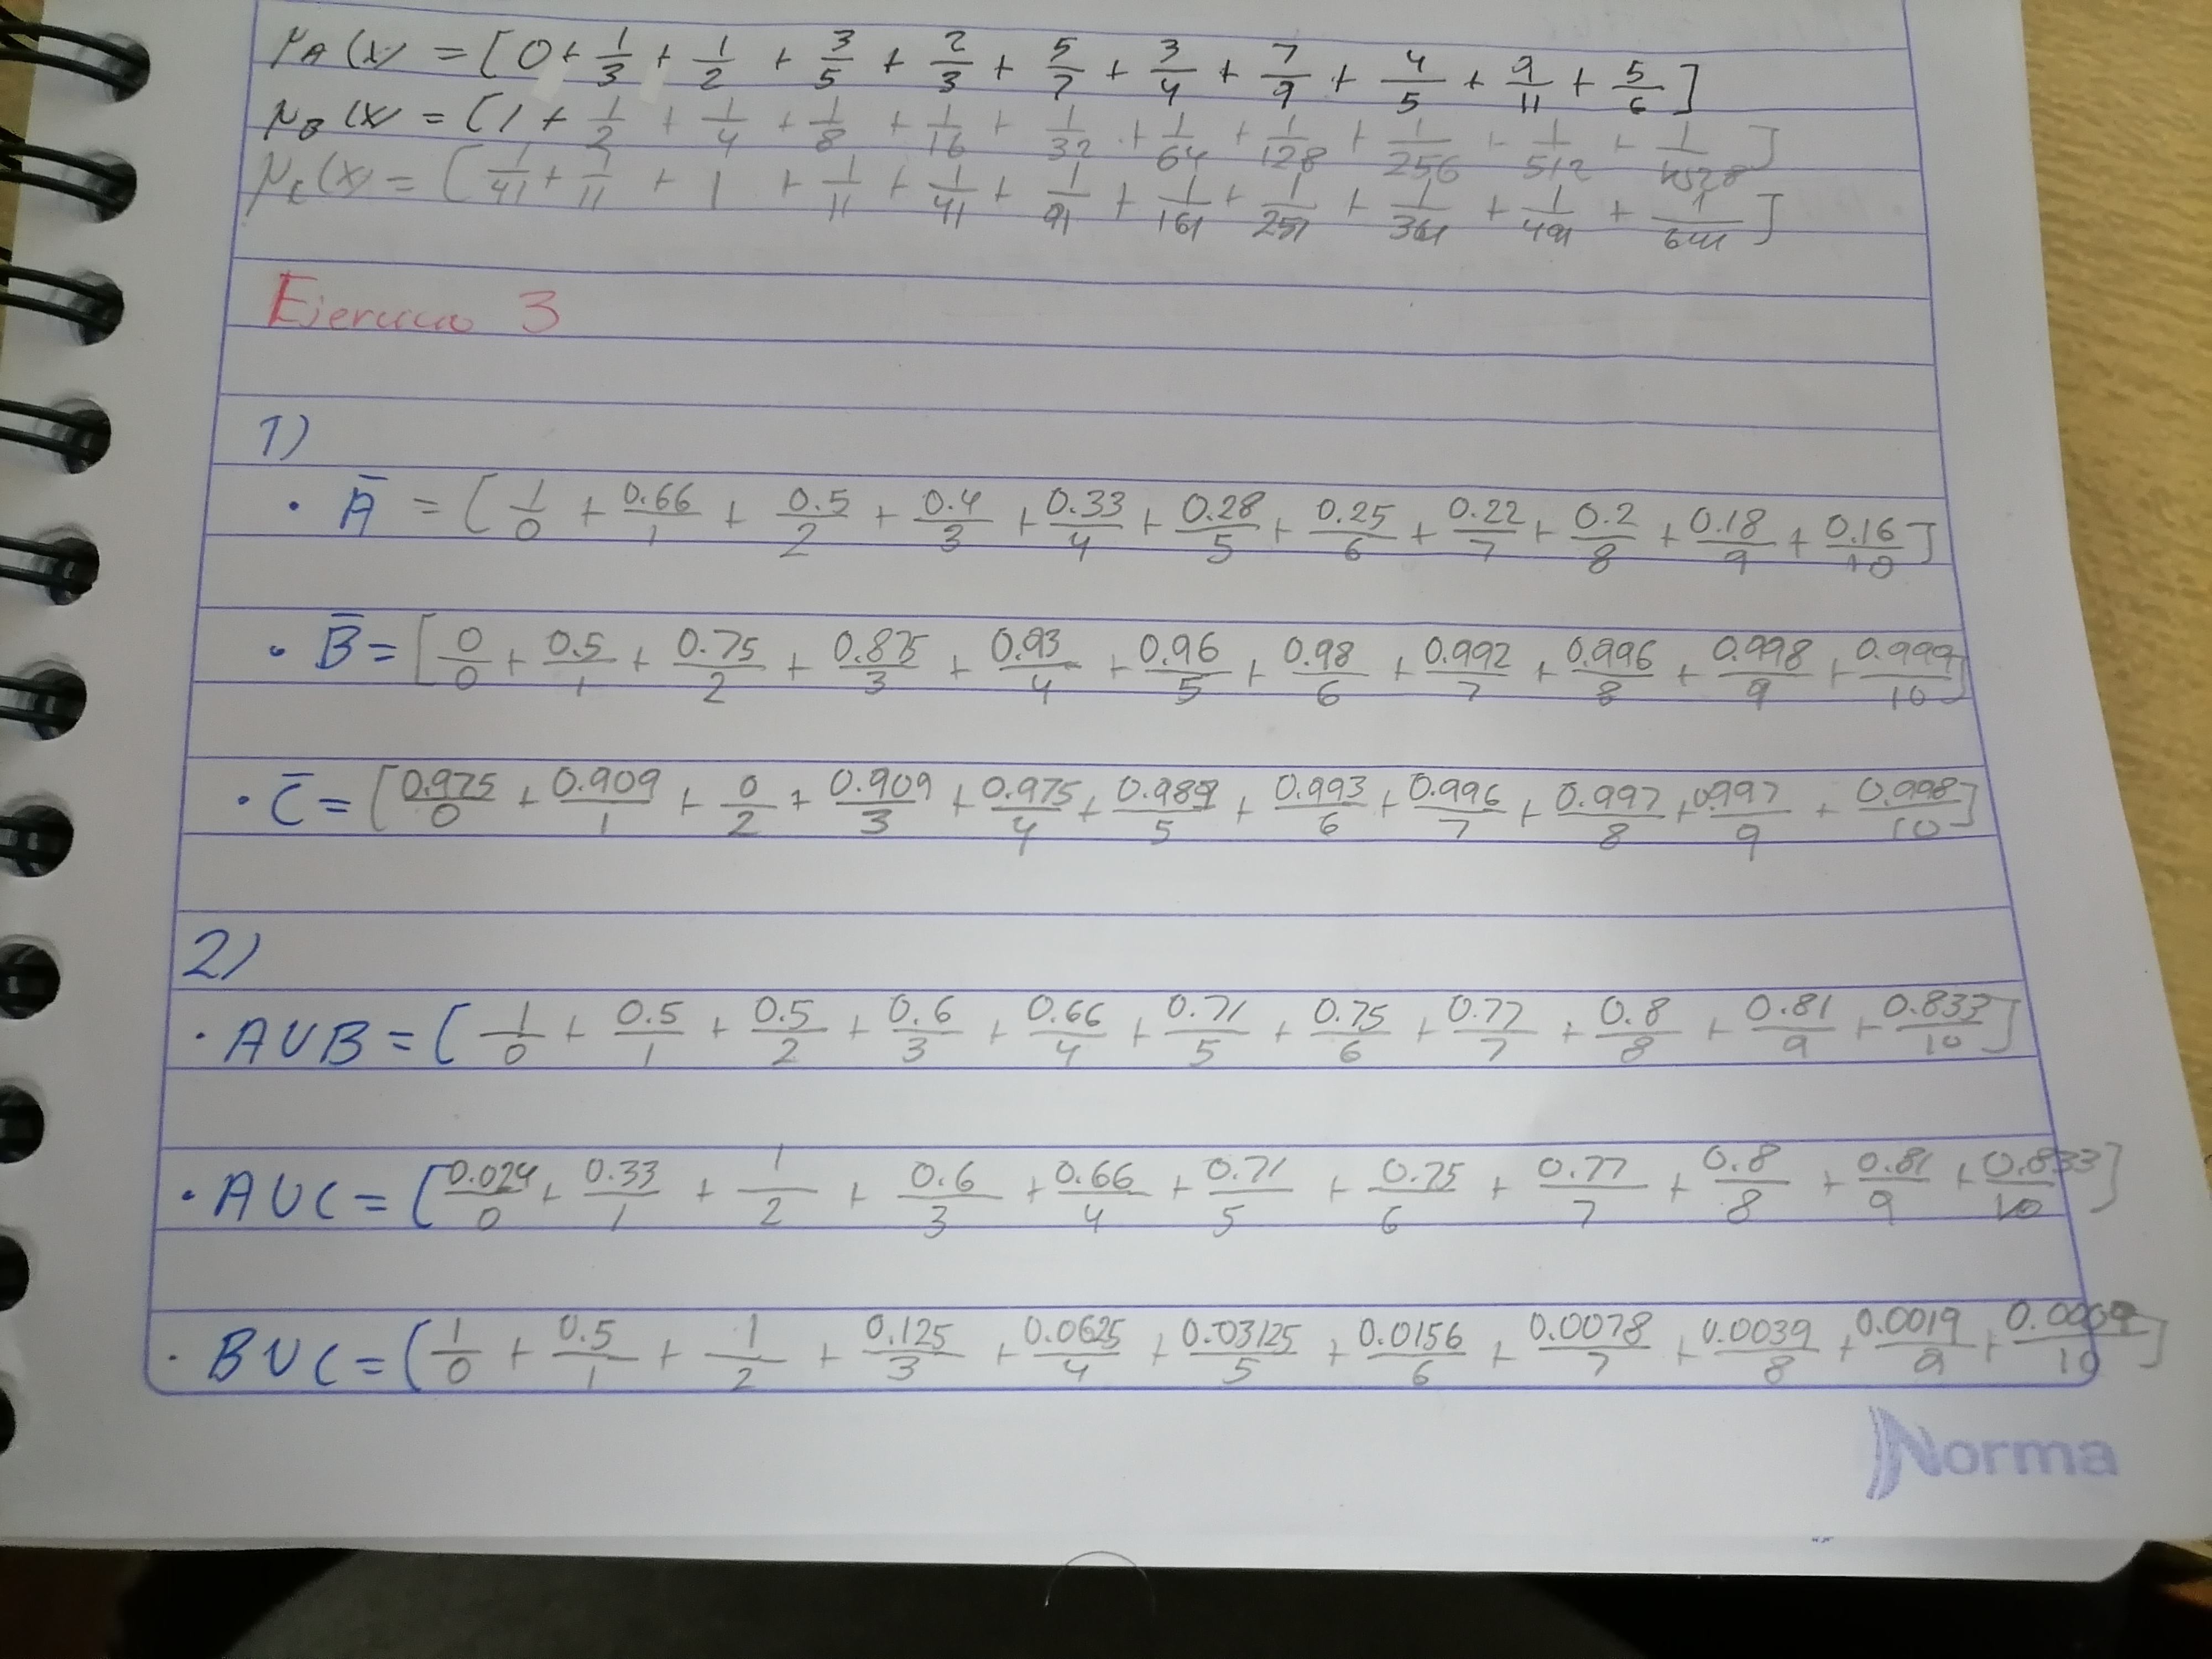 μA(x) = [0 + 1/3 + 1/2 + 3/5 + 2/3 + 5/7 + 3/4 + 7/9 + 4/5 + 9/11 + 5/6]
μB(x) = [1 + 1/2 + 1/4 + 1/8 + 1/16 + 1/32 + 1/64 + 1/128 + 1/256 + 1/512 + 1/]
μC(x) = [1/41 + 1/11 + 1 + 1/11 + 1/41 + 1/91 + 1/161 + 1/251 + 1/361 + 1/491 + 1/641]
Ejercicio 3
1)
• Ā = [1/0 + 0.66/1 + 0.5/2 + 0.4/3 + 0.33/4 + 0.28/5 + 0.25/6 + 0.22/7 + 0.2/8 + 0.18/9 + 0.16/10]
• B̄ = [0/0 + 0.5/1 + 0.75/2 + 0.875/3 + 0.93/4 + 0.96/5 + 0.98/6 + 0.992/7 + 0.996/8 + 0.998/9 + 0.999/10]
• C̄ = [0.975/0 + 0.909/1 + 0/2 + 0.909/3 + 0.975/4 + 0.989/5 + 0.993/6 + 0.996/7 + 0.997/8 + 0.997/9 + 0.998/10]
2)
• AUB = [1/0 + 0.5/1 + 0.5/2 + 0.6/3 + 0.66/4 + 0.71/5 + 0.75/6 + 0.77/7 + 0.8/8 + 0.81/9 + 0.833/10]
• AUC = [0.024/0 + 0.33/1 + 1/2 + 0.6/3 + 0.66/4 + 0.71/5 + 0.75/6 + 0.77/7 + 0.8/8 + 0.81/9 + 0.833/10]
• BUC = [1/0 + 0.5/1 + 1/2 + 0.125/3 + 0.0625/4 + 0.03125/5 + 0.0156/6 + 0.0078/7 + 0.0039/8 + 0.0019/9 + 0.0009/10]
Norma